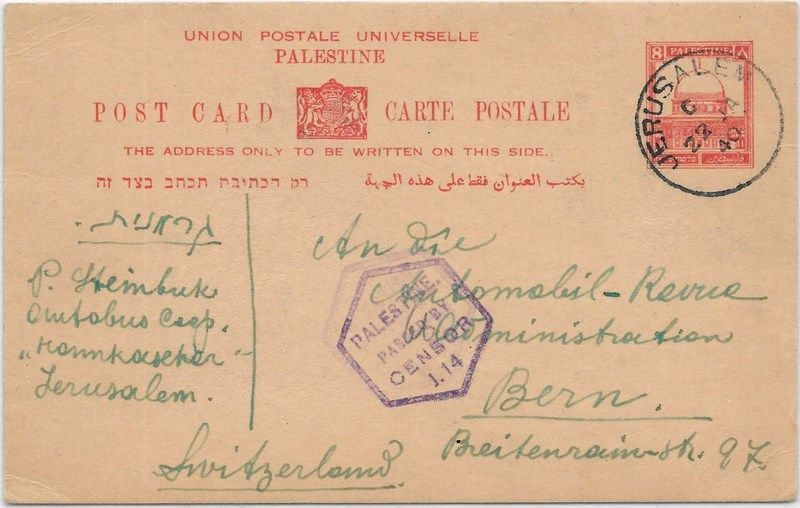 UNION POSTALE UNIVERSELLE
PALESTINE
POST CARD CARTE POSTALE
THE ADDRESS ONLY TO BE WRITTEN ON THIS SIDE.
רק הכתובת תכתב בצד זה
يكتب العنوان فقط على هذه الجهة
8 PALESTINE ٨
JERUSALEM
6
22 JA
40
גרמנית.
P. Steinbuk
Autobus Coop.
"Hamkascher"
Jerusalem.
Switzerland.
An die
Automobil-Revue
Administration
Bern.
Breitenrain-str. 97.
PALESTINE
PASSED BY
CENSOR
J.14